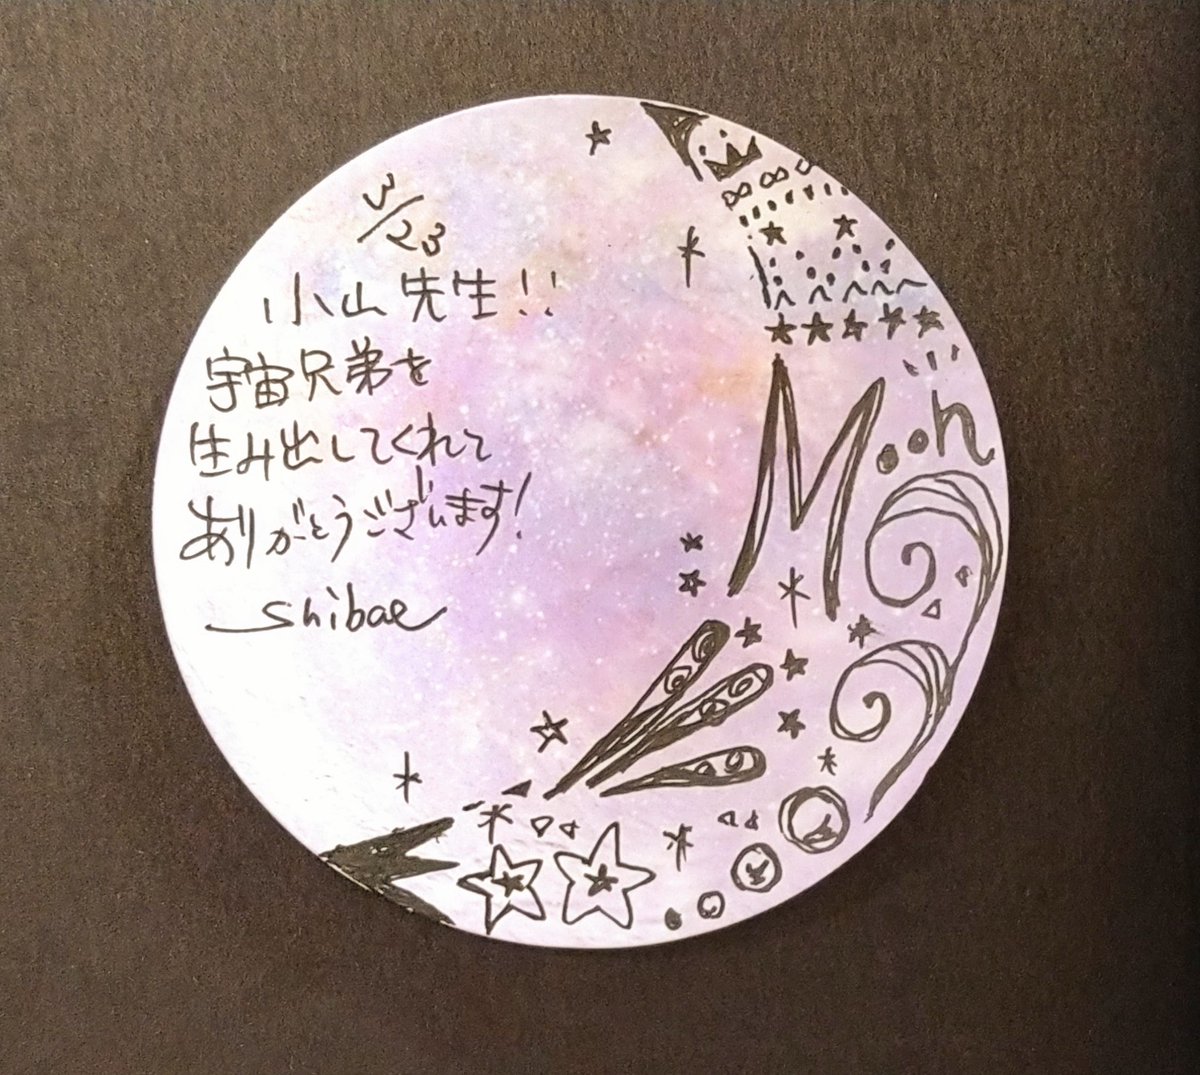 3/23
小山先生!!
宇宙兄弟を
生み出してくれて
ありがとうございます!
shibae
Moon